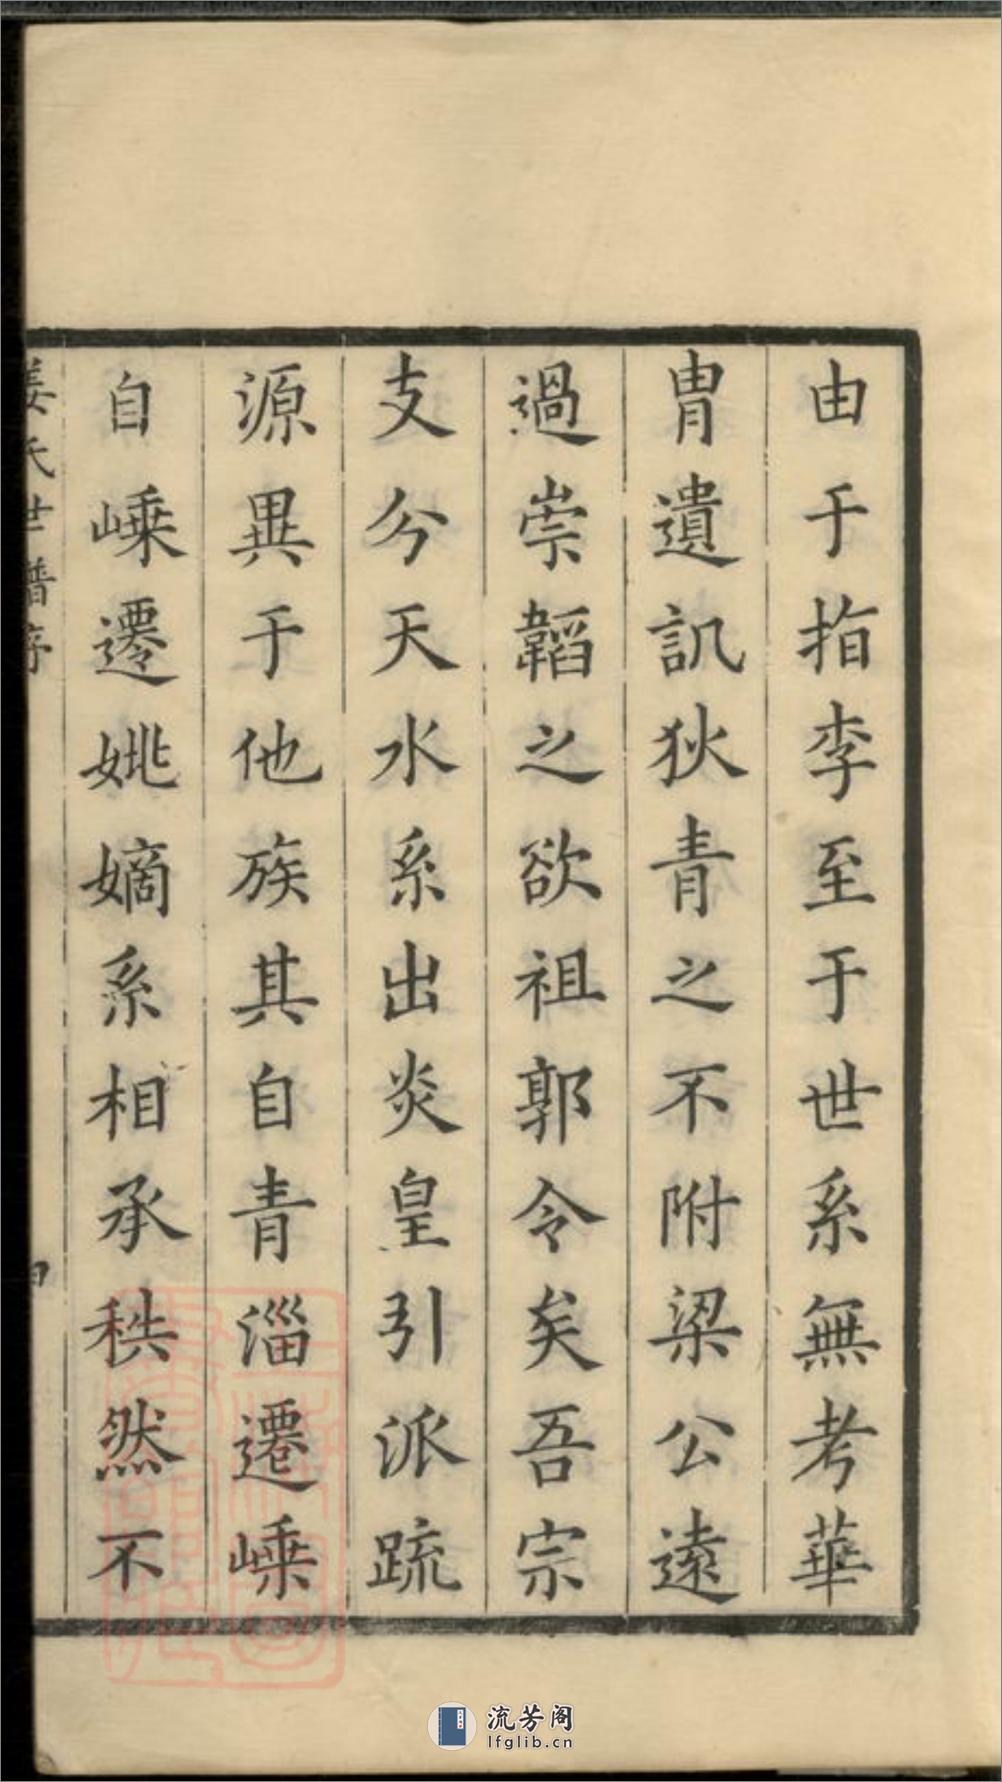 由于指李至于世系無考華
胄遺訊狄青之不附梁公遠
過崇韜之欲祖郭令矣吾宗
支分天水系出炎皇引派疏
源異于他族其自青淄遷嵊
自嵊遷姚嫡系相承秩然不
姜氏世譜序
流芳阁
lfglib.cn